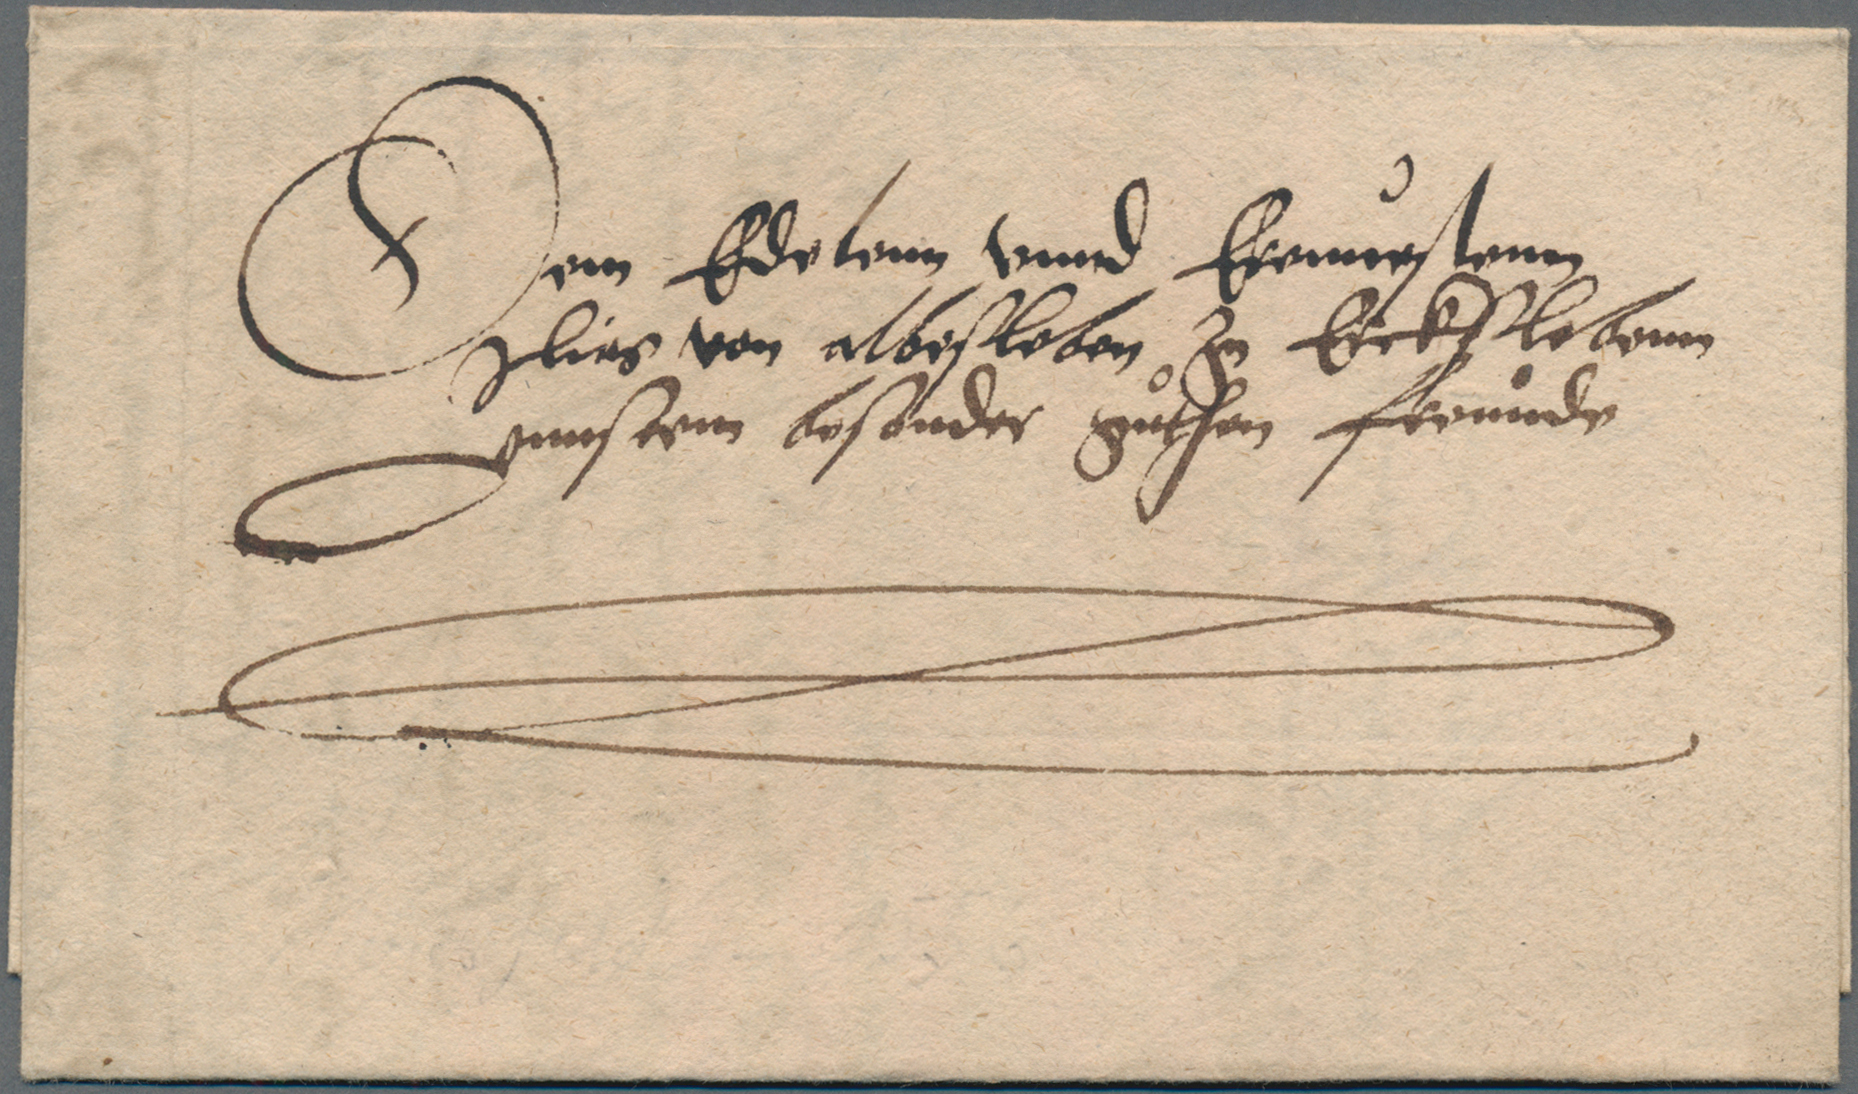 Dem Edelenn vnnd Ernuestenn
Ilies von alvesleben Zu Erckslebenn
vnnserm besonder guthen freunde